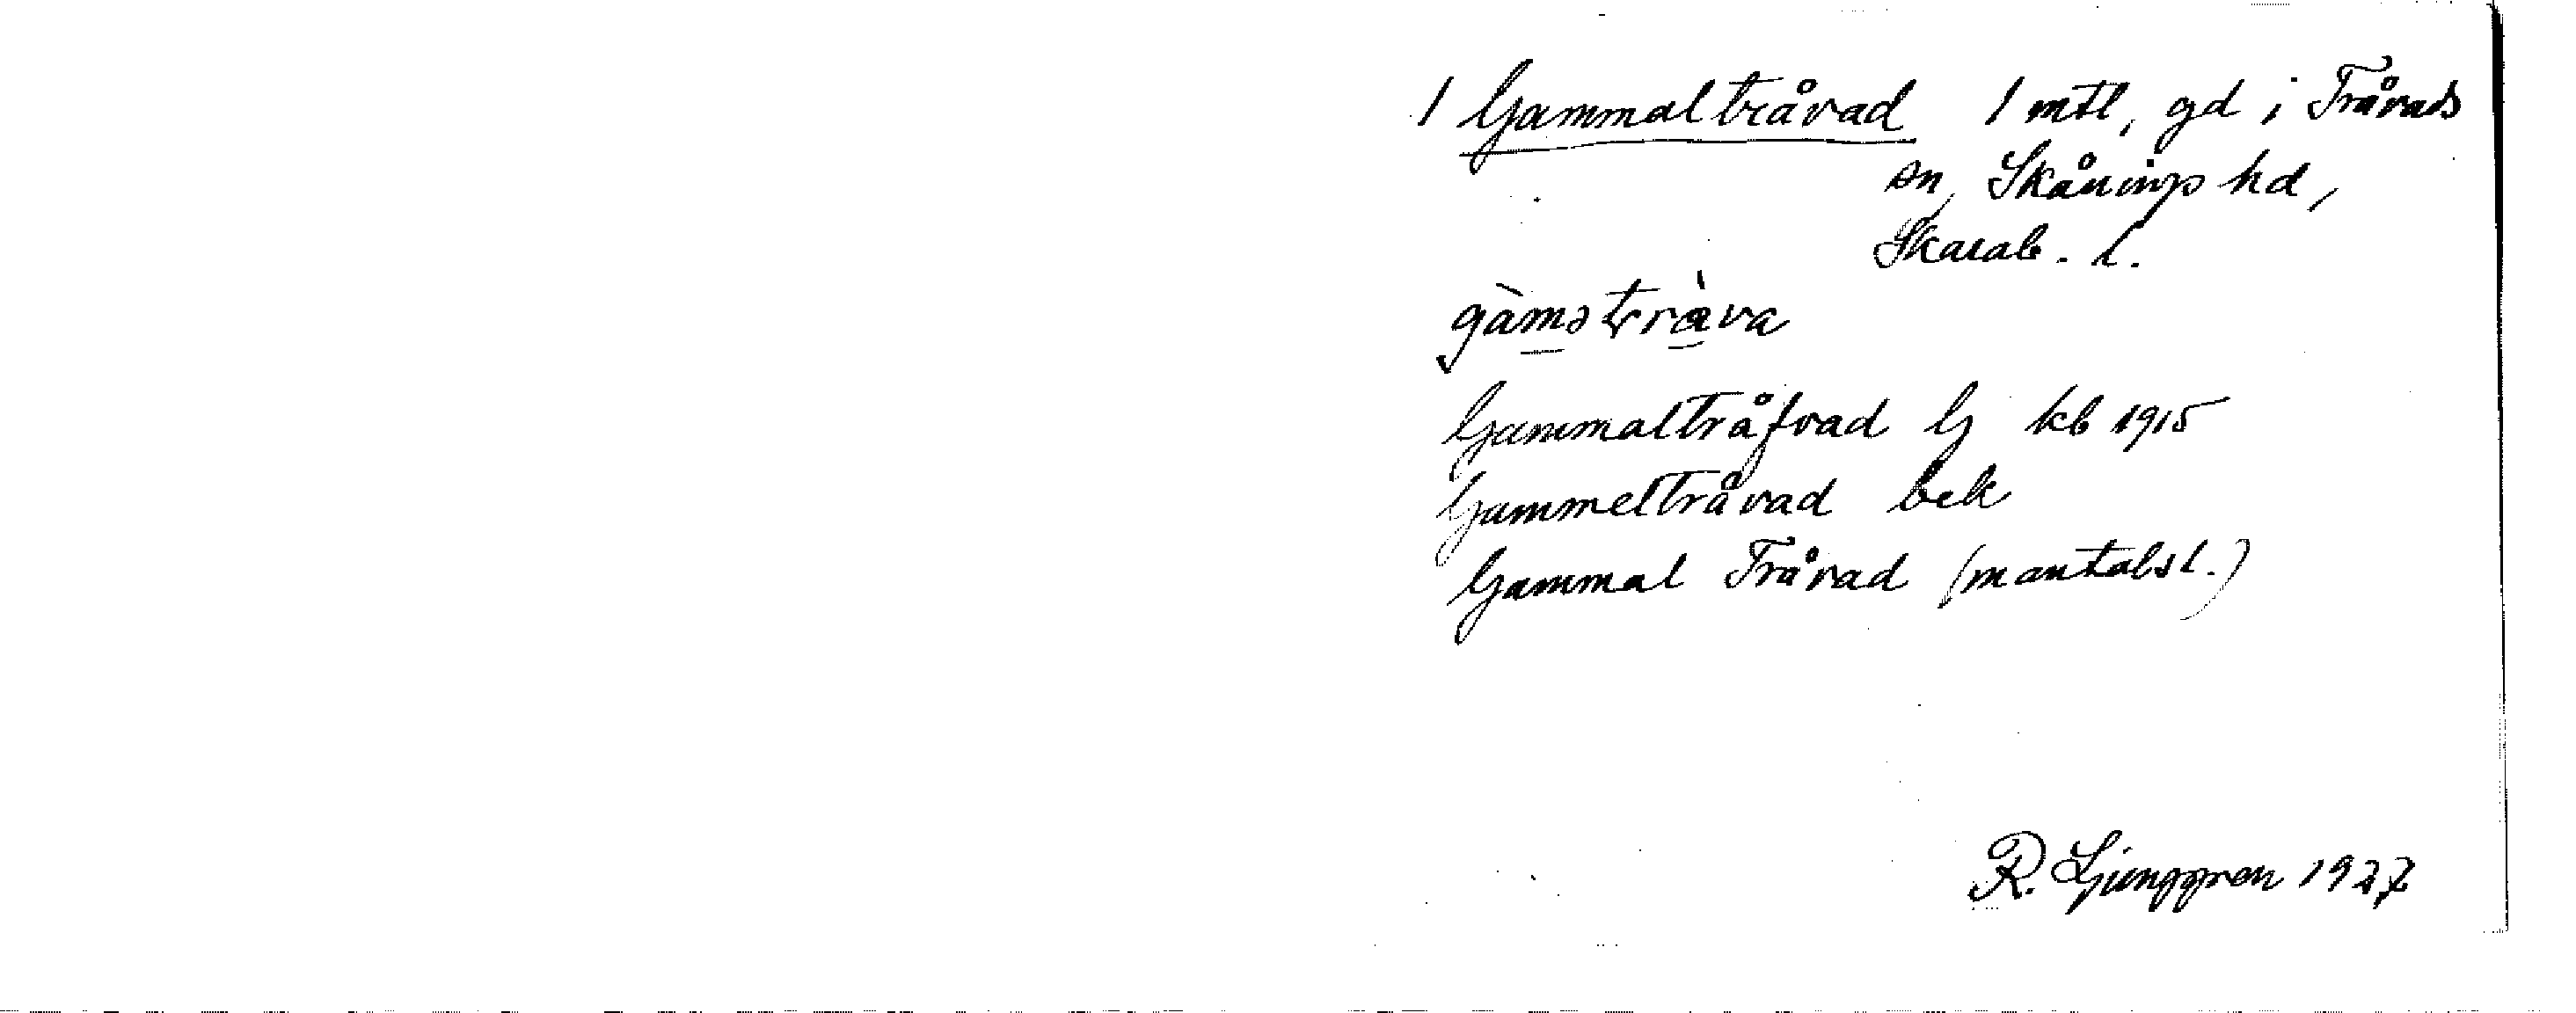 1 Gammaltråvad 1 mtl, gd i Tråvads
sn, Skånings hd,
Skarab. l.
gàmətràva
Gammaltråfvad G kb 1915
Gammeltråvad bek
Gammal Tråvad (mantalsl.)
R. Ljunggren 1927